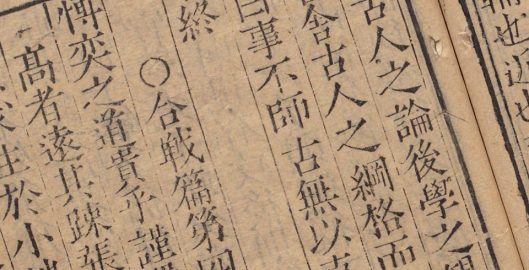 輔也
古人之論後學之
舍古人之綱格而
曰事不師古無以
終
○合戰篇第四
博奕之道貴乎謹
高者遠其疎張
生於小